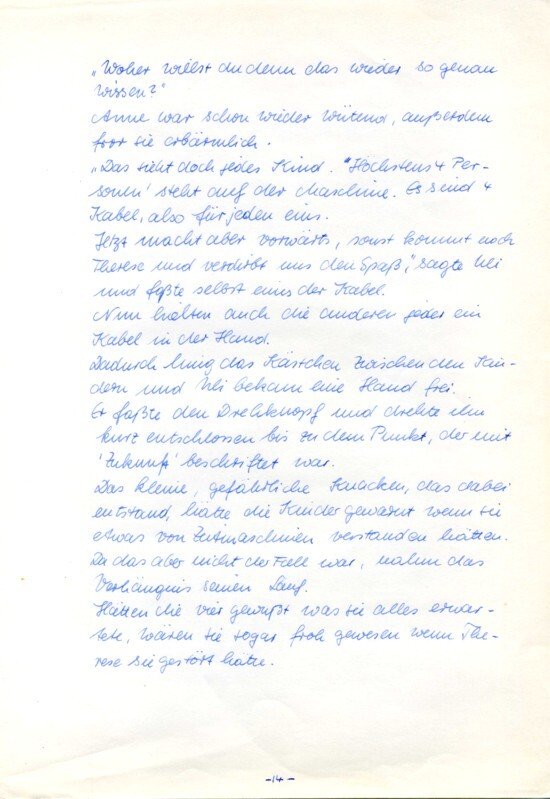 „Woher willst du denn das wieder so genau
wissen?"
Anne war schon wieder wütend, außerdem
fror sie erbärmlich.
„Das sieht doch jedes Kind. 'Höchstens 4 Per-
sonen' steht auf der Maschine. Es sind 4
Kabel, also für jeden eins.
Jetzt macht aber vorwärts, sonst kommt noch
Therese und verdirbt uns den Spaß", sagte Uli
und faßte selbst eins der Kabel.
Nun hielten auch die anderen jeder ein
Kabel in der Hand.
Dadurch hing das Kästchen zwischen den Kin-
dern und Uli bekam eine Hand frei.
Er faßte den Drehknopf und drehte ihn
kurz entschlossen bis zu dem Punkt, der mit
'Zukunft' beschriftet war.
Das kleine, gefährliche Knacken, das dabei
entstand, hätte die Kinder gewarnt wenn sie
etwas von Zeitmaschinen verstanden hätten.
Da das aber nicht der Fall war, nahm das
Verhängnis seinen Lauf.
Hätten die vier gewußt was sie alles erwar-
tete, wären sie sogar froh gewesen wenn The-
rese sie gestört hätte.
-14-